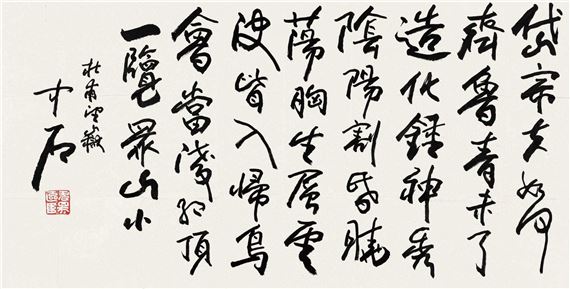 岱宗夫如何
齊魯青未了
造化鍾神秀
陰陽割昏曉
蕩胸生層雲
決眥入歸鳥
會當凌絕頂
一覽眾山小
杜甫望嶽
中石